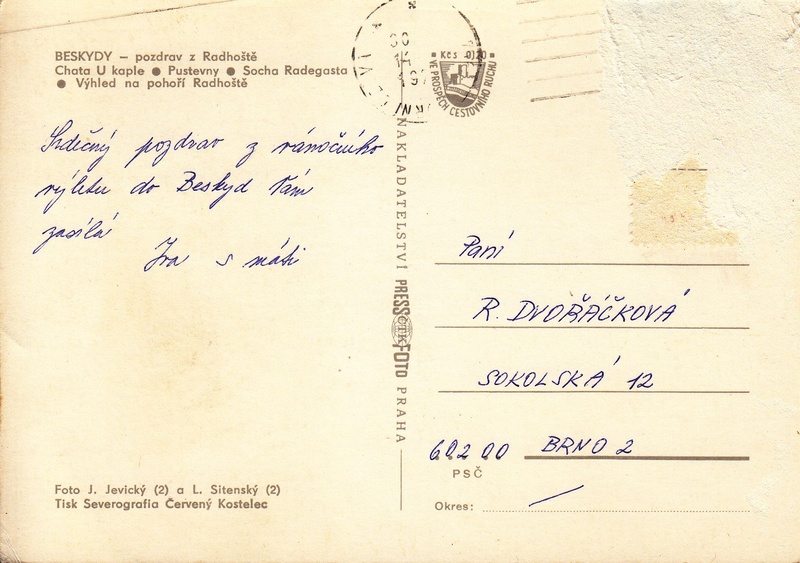 BESKYDY — pozdrav z Radhoště
Chata U kaple ● Pustevny ● Socha Radegasta
● Výhled na pohoří Radhoště
Srdečný pozdrav z vánočního
výletu do Beskyd Vám
zasílá
Iva s máti
Foto J. Jevický (2) a L. Sitenský (2)
Tisk Severografia Červený Kostelec
NAKLADATELSTVÍ PRESSFOTO PRAHA
ČTK
Kčs 0,20
VE PROSPĚCH CESTOVNÍHO RUCHU
Paní
R. DVOŘÁČKOVÁ
SOKOLSKÁ 12
602 00 BRNO 2
PSČ
Okres: